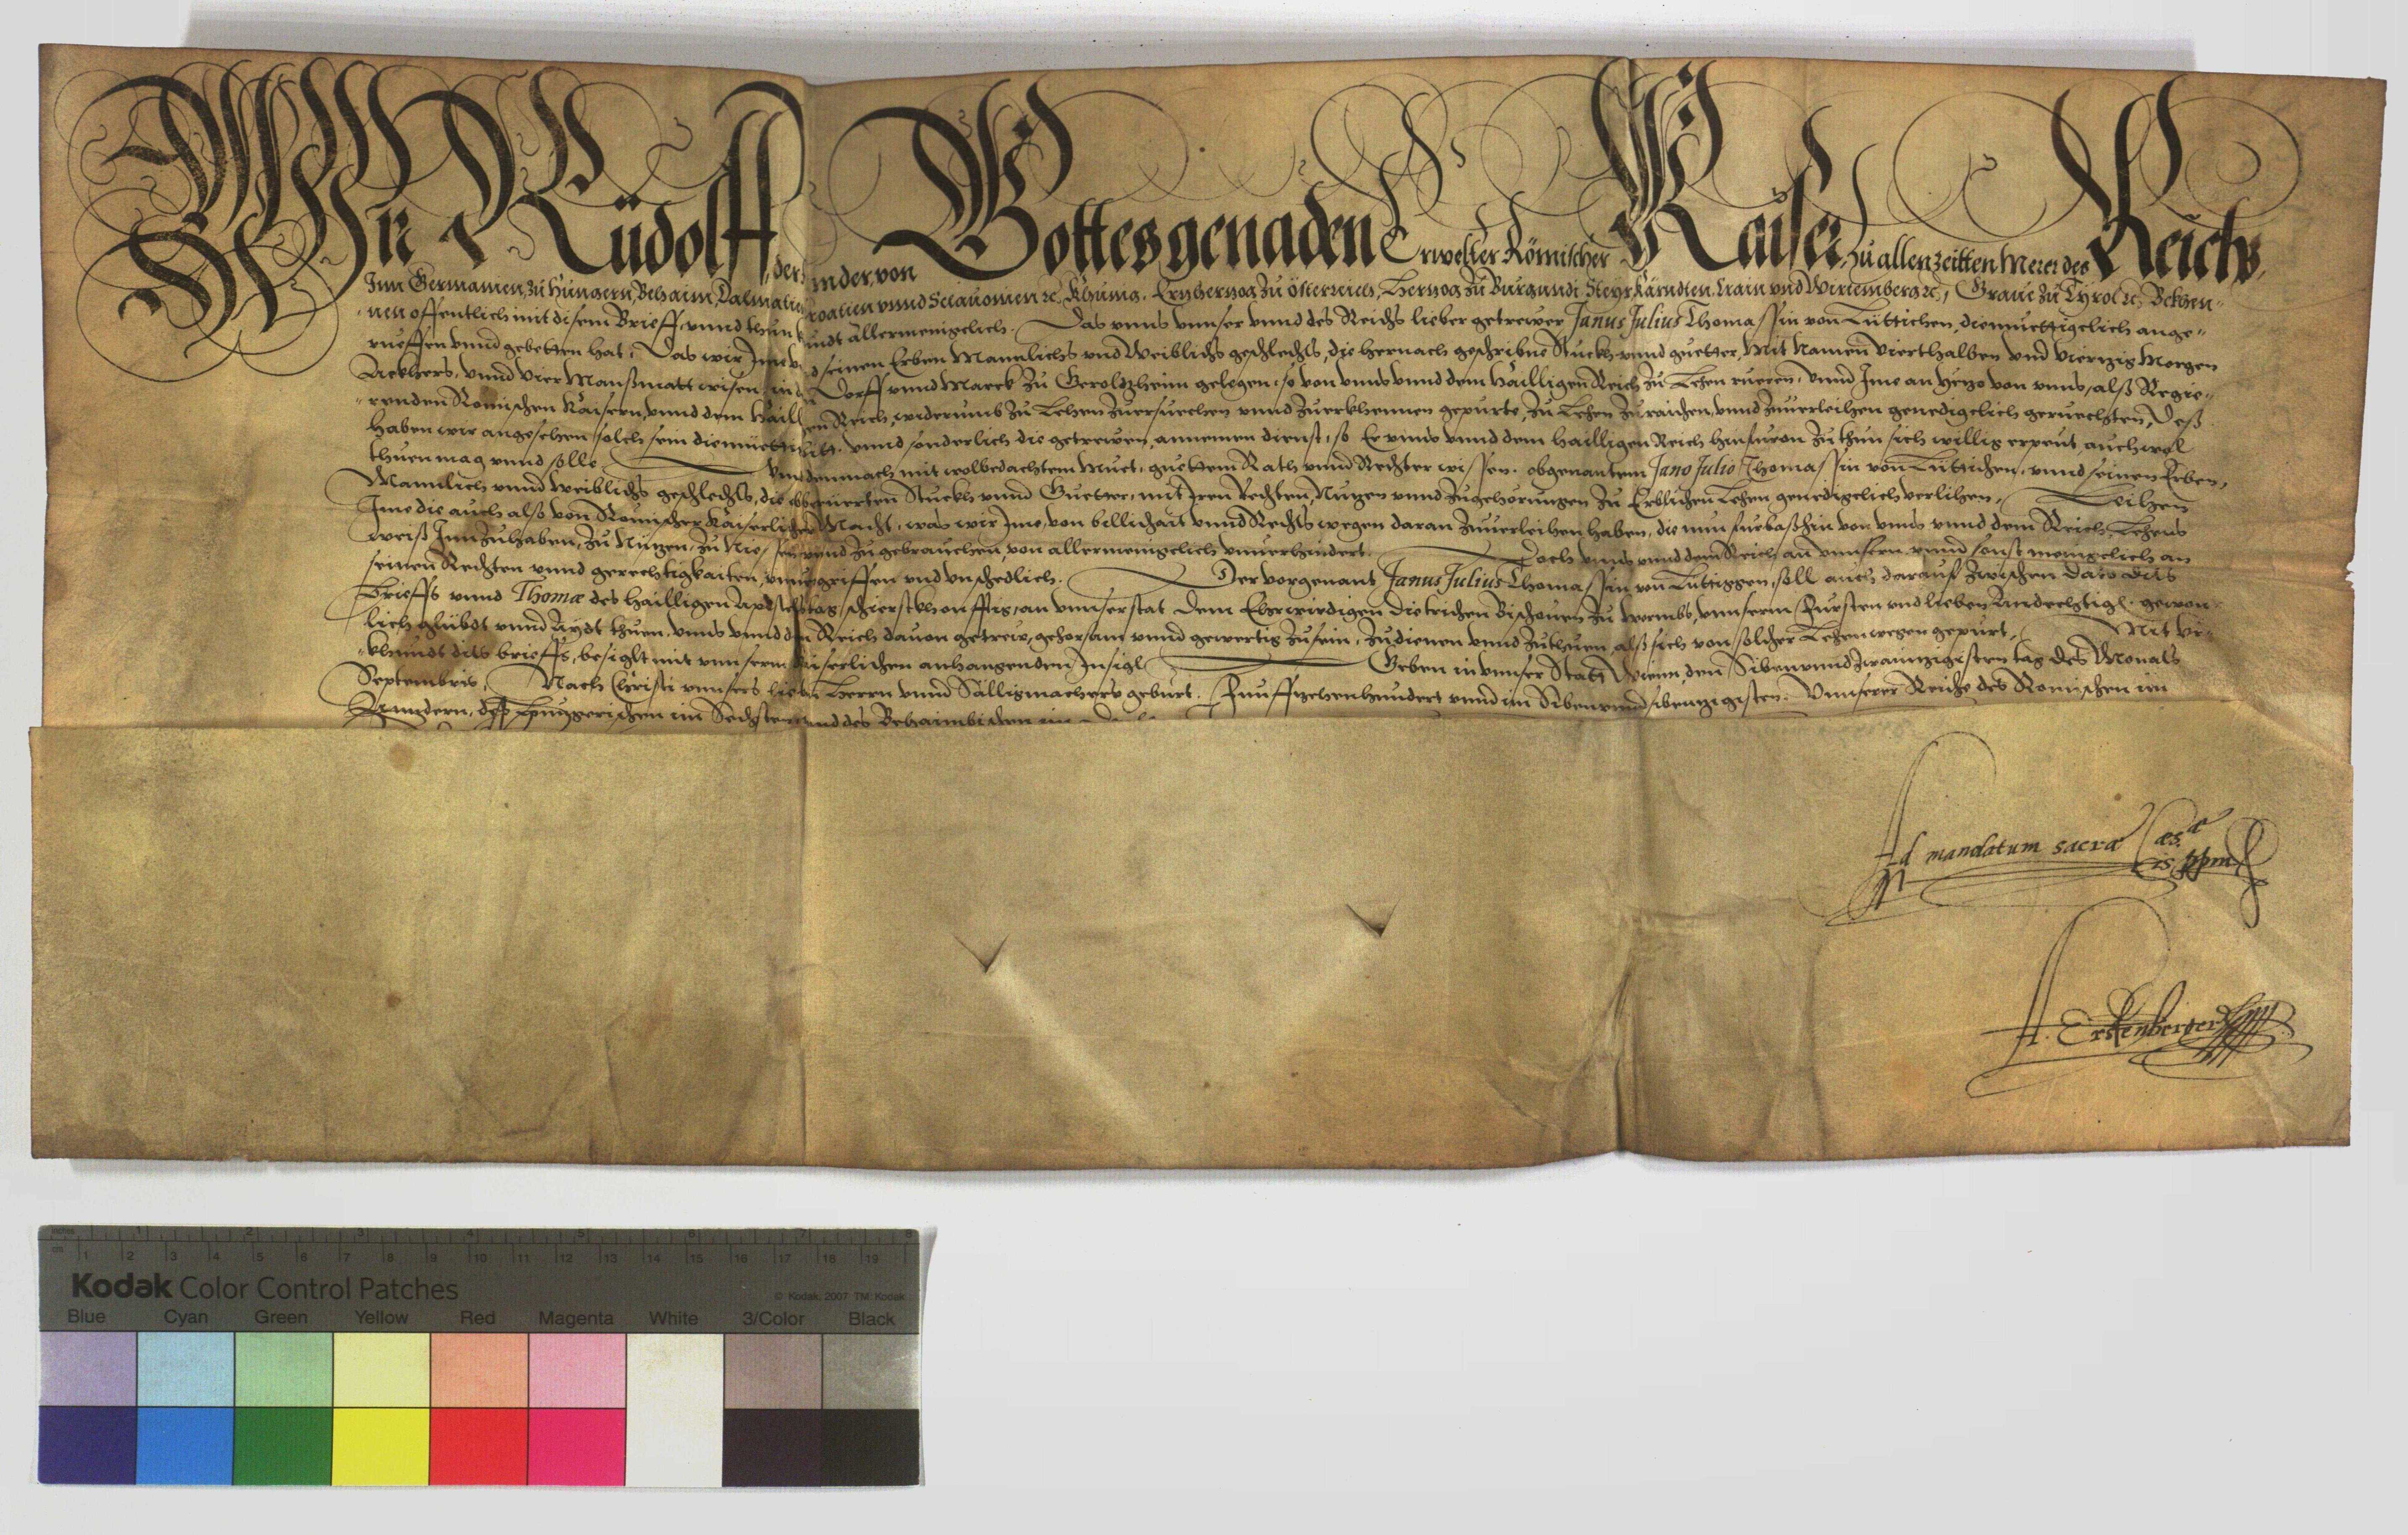 Wir Rudolff der ander von Gottes genaden Erwelter Römischer Kaiser, zu allen zeitten Merer des Reichs,
Inn Germanien, zu Hungern, Behaim, Dalmatien Croatien vnnd Sclauonien ꝛc. Khunig. Ertzhertzog zu Österreich, Hertzog zu Burgundi, Steyr, Kärndten, Crain vnd Wirtemberg ꝛc., Graue zu Tyrol ꝛc. Bekhen-
nen offentlich mit disem Brieff, vnnd thun kundt allermenigclich. Das vnns vnnser vnnd des Reichs lieber getrewer Janus Julius Thomassin von Lüttichen, diemuettigclich ange-
rueffen vnnd gebetten hat, Das wir Ime vnd seinen Erben Mannlichs vnd Weiblichs geschlechts, die hernach geschribne Stuckh vnnd guetter, Mit Namen Vierthalben vnd Viertzig Morgen
Ackhers, vnnd Vier Manßmatt wisen, in dem Dorff vnnd Marck zu Geroldtzheim gelegen, so von vnns vnnd dem Hailligen Reich zu Lehen rueren, vnnd Ime an yetzo von vnns, alß Regie-
renden Romischen Kaisern, vnnd dem Hailligen Reich, widerumb zu Lehen zuersuechen vnnd zuerkhennen gepürte, zu Lehen zuraichen, vnnd zuuerleihen genedigclich geruechten, Deß
haben wir angesehen solch sein diemüettig bitt, vnnd sonderlich die getrewen, annemen dienst, so Er vnns vnnd dem hailligen Reich hinfuron zu thun sich willig erpeut, auch wol
thuen mag vnnd solle. Vnnd demnach mit wolbedachtem Muet, guettem Rath vnnd Rechter wissen, obgenantem Jano Julio Thomassin von Lüttichen, vnnd seinen Erben,
Mannlich vnnd weiblichs geschlechts, die obberuerten Stuckh vnnd Guetter, mit Iren Rechten, Nutzen vnnd zugehörungen zu Erblichen Lehen genedigclich verlihen, Leihen
Ime die auch alß von Römischer Kaiserlicher Macht, was wir Ime, von billichait vnnd Rechts wegen daran zuuerleihen haben, die nun fuebaßhin von vnns vnnd dem Reich, Lehens
weiß Innzuhaben, zu Nützen, zu Niessen vnnd zu gebrauchen, von allermenigclich vnuerhindert. Doch vnns vnnd dem Reich an vnnsern vnnd sonst menigclich an
seinen Rechten vnnd gerechtigkaiten, vnuergriffen vnd vnschedlich. Der vorgenant Janus Julius Thomassin von Lüttiggen, soll auch darauf zwischen dato dits
Brieffs vnnd Thomæ des hailligen Apostels tag, schierstkhonfftig, an vnnser stat dem Ehrwirdigen Dietrichen Bischouen zu Wormbs, vnnserm Fürsten vnd lieben Andechtigen, gewon-
lich glübdt vnnd Aydt thuen, vnns vnnd dem Reich dauon getrew, gehorsam vnnd gewertig zu sein, zudienen vnnd zuthuen, alß sich von solcher Lehen wegen gepürt, Mit vr-
khundt dits brieffs, besiglt mit vnnserm kaiserlichen anhangenden Insigl. Geben in vnnser Statt Wienn, den Sibenvnndzwaintzigisten tag des Monats
Septembris, Nach Christi vnnsers lieben Herrn vnnd Sälligmachers geburt. Fünffzehenhundert vnnd im Sibenvnndsibentzigisten. Vnnserer Reiche des Romischen im
Anndern, des Hungerischen im Sechsten vnd des Behaimbischen im
Ad mandatum sacræ Cæs.æ
is ppm
A. Erstenberger
inches 1 2 3 4 5 6 7 8
cm 1 2 3 4 5 6 7 8 9 10 11 12 13 14 15 16 17 18 19
Kodak Color Control Patches
© Kodak, 2007 TM: Kodak
Blue Cyan Green Yellow Red Magenta White 3/Color Black